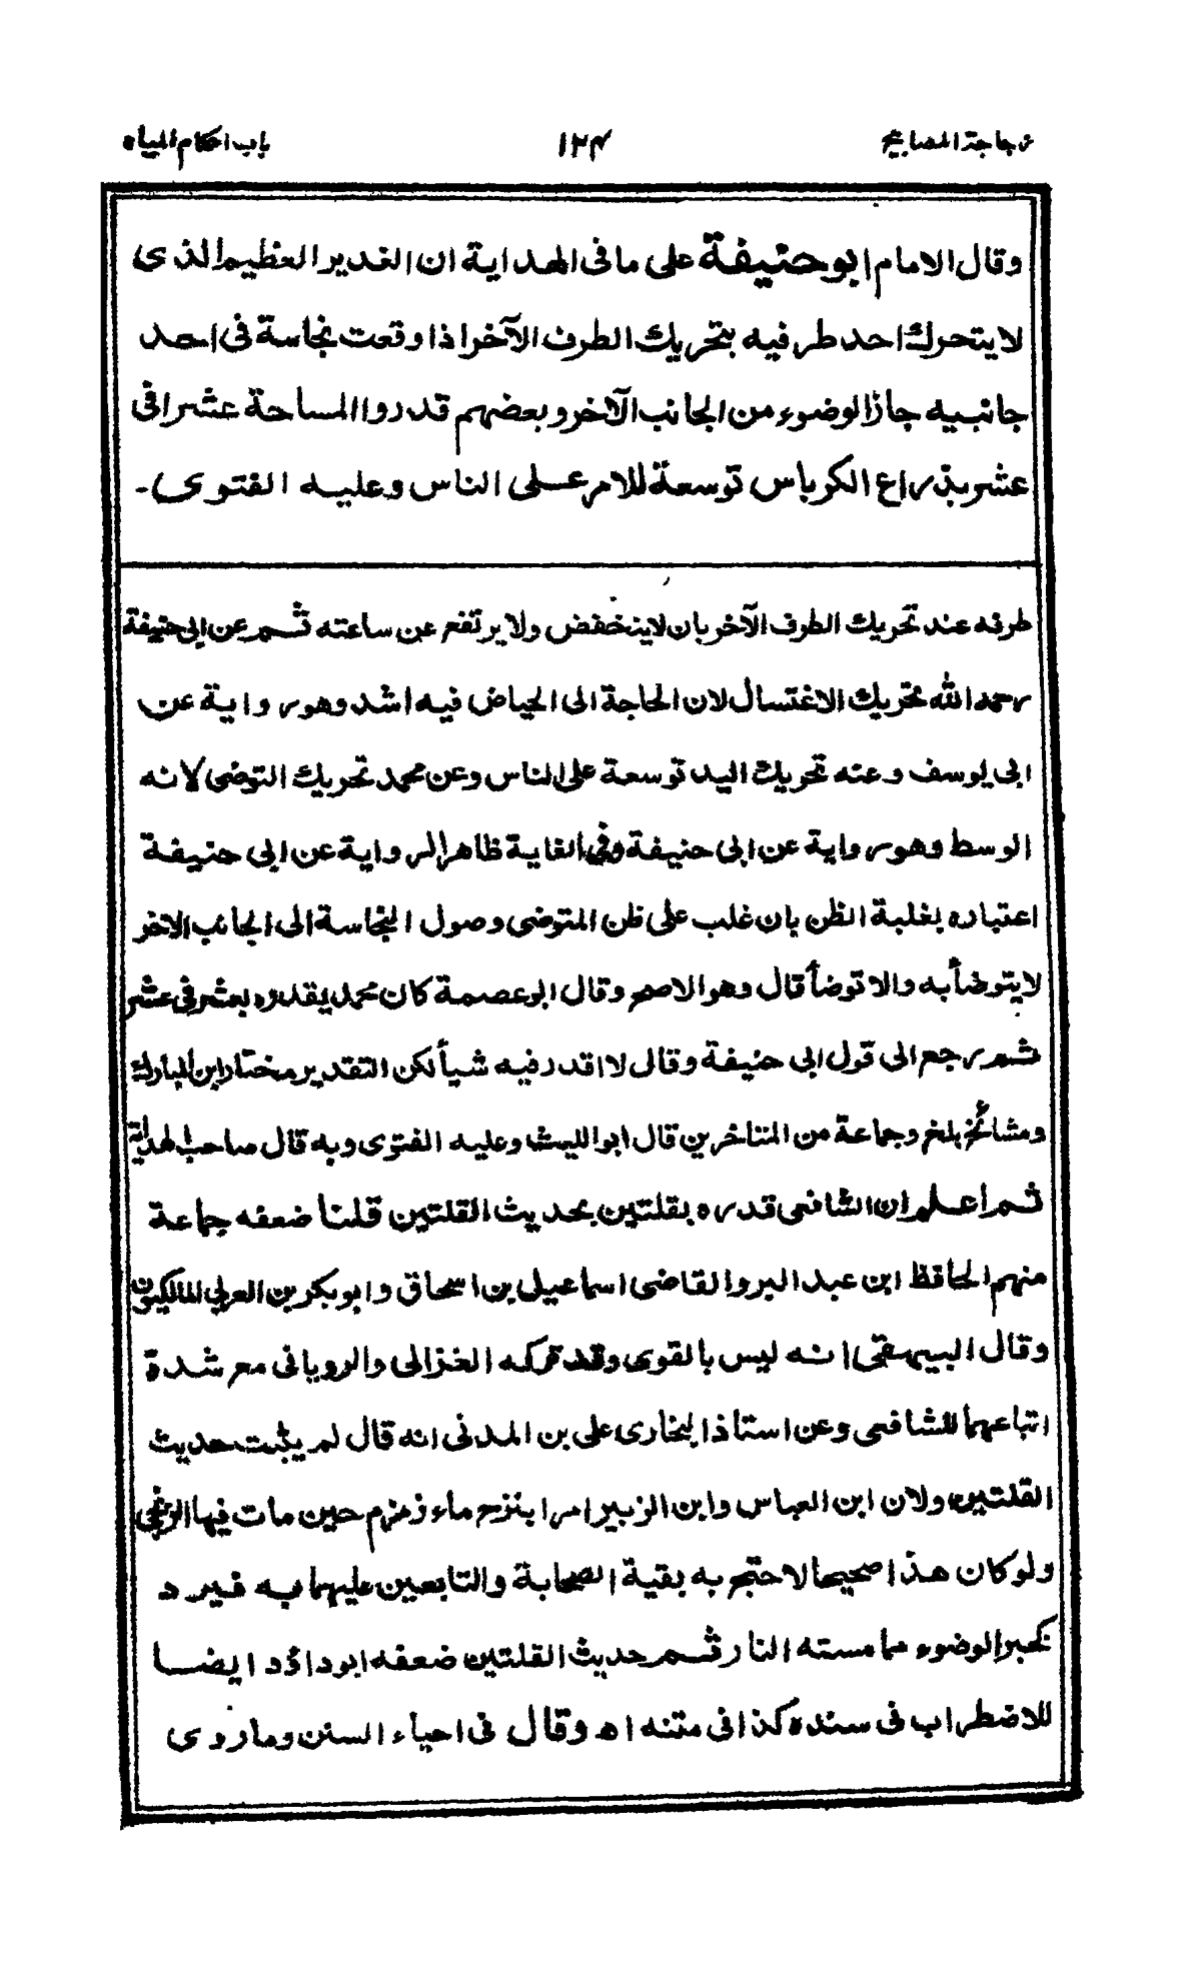 زجاجة المصابيح ١٢٤ باب احكام المياه
وقال الامام ابو حنيفة على ما فى الهداية ان الغدير العظيم الذى
لا يتحرك احد طرفيه بتحريك الطرف الآخر اذا وقعت نجاسة فى احد
جانبيه جاز الوضوء من الجانب الآخر وبعضهم قدروا المساحة عشرا فى
عشر بذراع الكرباس توسعة للامر على الناس وعليه الفتوى)-
طرفه عند تحريك الطرف الآخر بان لا ينخفض ولا يرتفع عن ساعته ثم عن ابى حنيفة
رحمه الله تحريك الاغتسال لان الحاجة الى الحياض فيه اشد وهو رواية عن
ابى يوسف وعنه تحريك اليد توسعة على الناس وعن محمد تحريك التوضى لانه
الوسط وهو رواية عن ابى حنيفة وفى الغاية ظاهر الرواية عن ابى حنيفة
اعتباره بغلبة الظن بان غلب على ظن المتوضى وصول النجاسة الى الجانب الآخر
لا يتوضأ به والا توضأ قال وهو الاصح وقال ابو عصمة كان محمد يقدره بعشر فى عشر
ثم رجع الى قول ابى حنيفة وقال لا اقدر فيه شيأ لكن التقدير مختار ابن المبارك
ومشائخ بلخ وجماعة من المتاخرين قال ابو الليث وعليه الفتوى وبه قال صاحب الهداية
ثم اعلم ان الشافعى قدره بقلتين بحديث القلتين قلنا ضعفه جماعة
منهم الحافظ ابن عبد البر والقاضى اسماعيل بن اسحاق وابو بكر بن العربى المالكيون
وقال البيهقى انه ليس بالقوى وقد تركه الغزالى والرويانى مع شدة
اتباعهما للشافعى وعن استاذ البخارى على بن المدنى انه قال لم يثبت حديث
القلتين ولان ابن العباس وابن الزبير امرا بنزح ماء زمزم حين مات فيها الزنجى
ولو كان هذا صحيحا لاحتج به بقية الصحابة والتابعين عليهما به فيرد
كخبر الوضوء مما مسته النار ثم حديث القلتين ضعفه ابو داؤد ايضا
للاضطراب فى سنده كذا فى متنه اه وقال فى احياء السنن وما روى